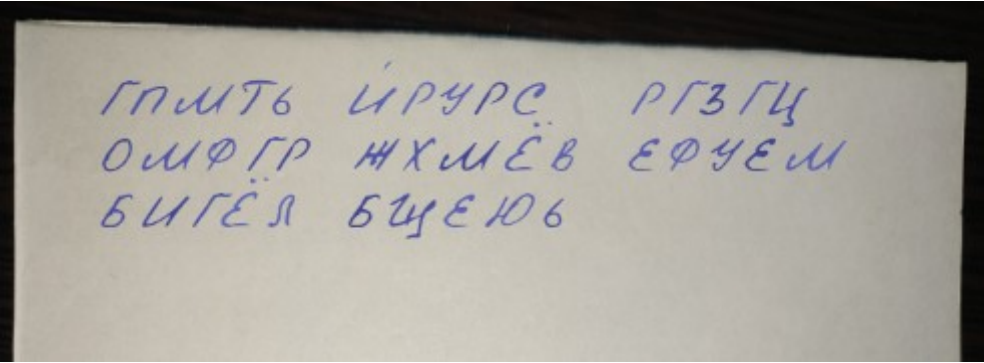 ГПМТЬ ИРУРС РГЗГЦ
ОМФГР ЖХМЁВ ЕФУЕМ
БИГЁЛ БЩЕЮЬ